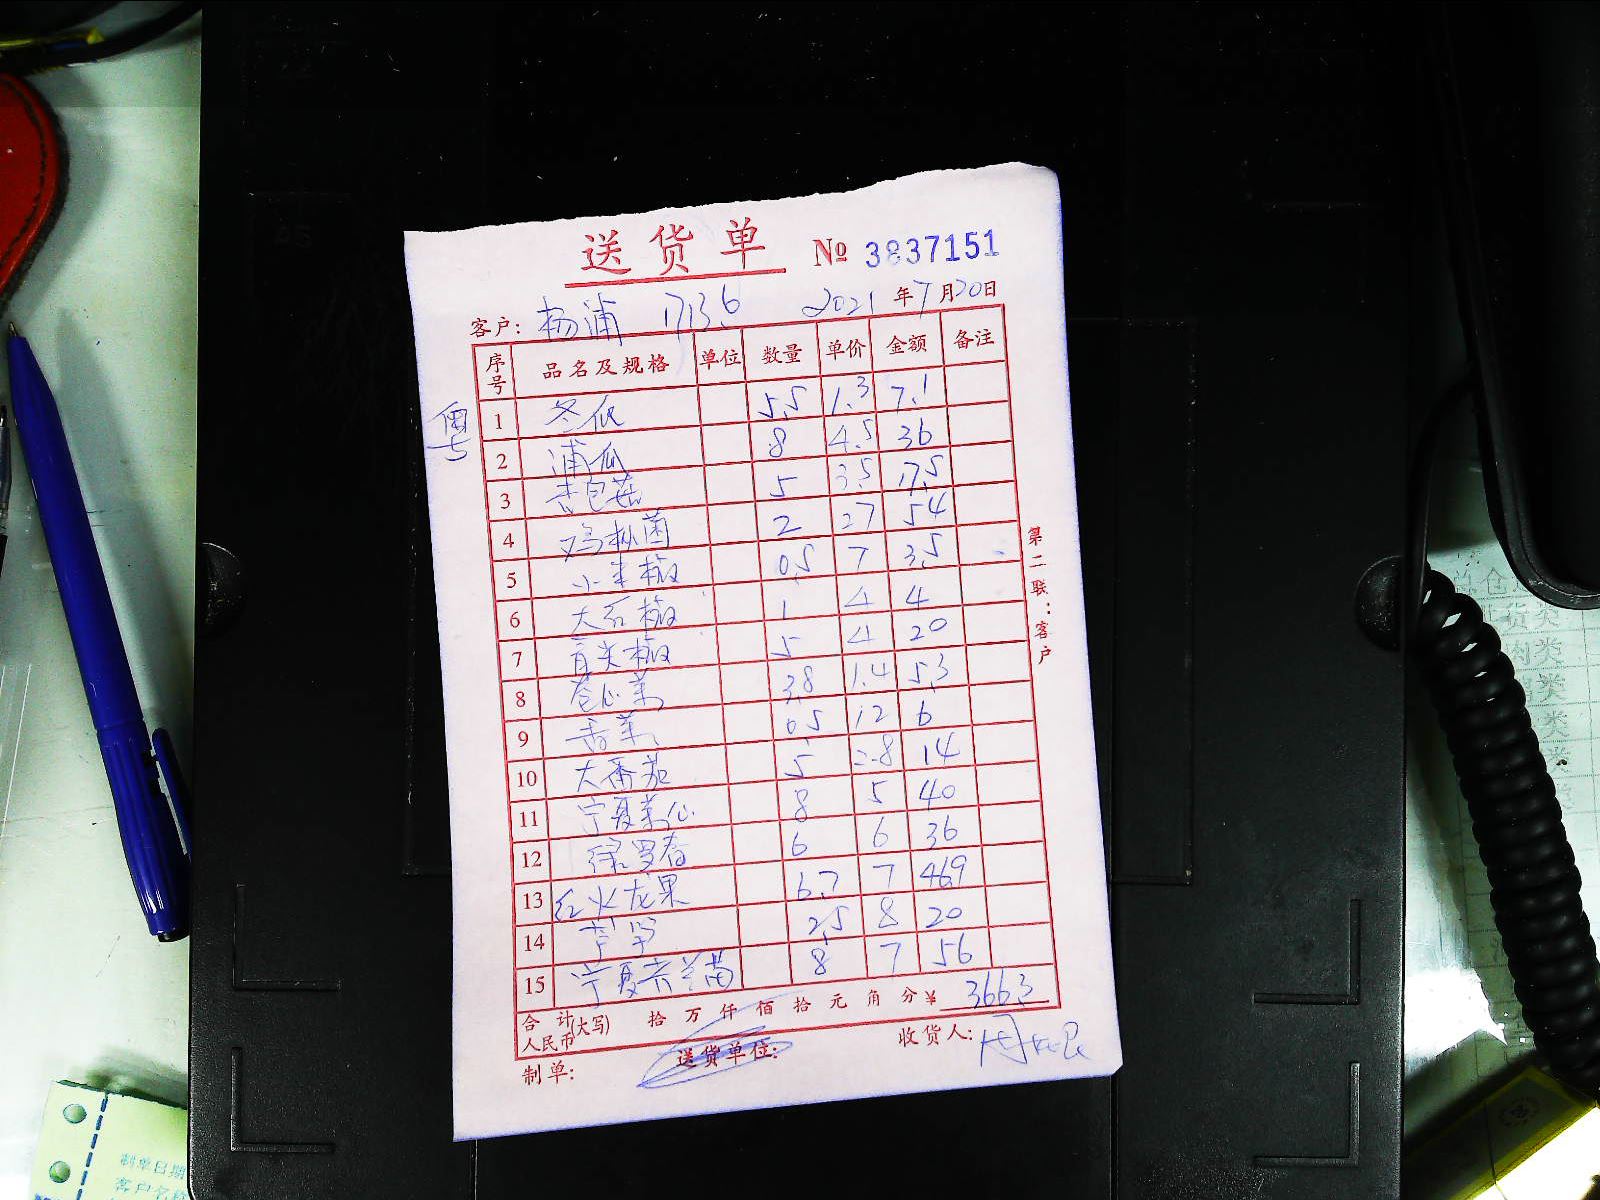 送货单 № 3837151
客户: 杨浦 1713.6 2021年7月20日
粤
序号 品名及规格 单位 数量 单价 金额 备注
1 冬瓜 5.5 1.3 7.1
2 浦瓜 8 4.5 36
3 杏包菇 5 3.5 17.5
4 鸡枞菌 2 27 54
5 小米椒 0.5 7 3.5
6 大石椒 1 4 4
7 青尖椒 5 4 20
8 苍心菜 3.8 1.4 5.3
9 香菜 0.5 12 6
10 大番茄 5 2.8 14
11 宁夏菜心 8 5 40
12 绿罗春 6 6 36
13 红火龙果 6.7 7 46.9
14 芦笋 2.5 8 20
15 宁夏芥兰苗 8 7 56
合计人民币(大写) 拾 万 仟 佰 拾 元 角 分 ¥ 366.3
制单: 送货单位: 收货人:
第二联:客户
制单日期
客户名称
货类
肉类
类
类
类